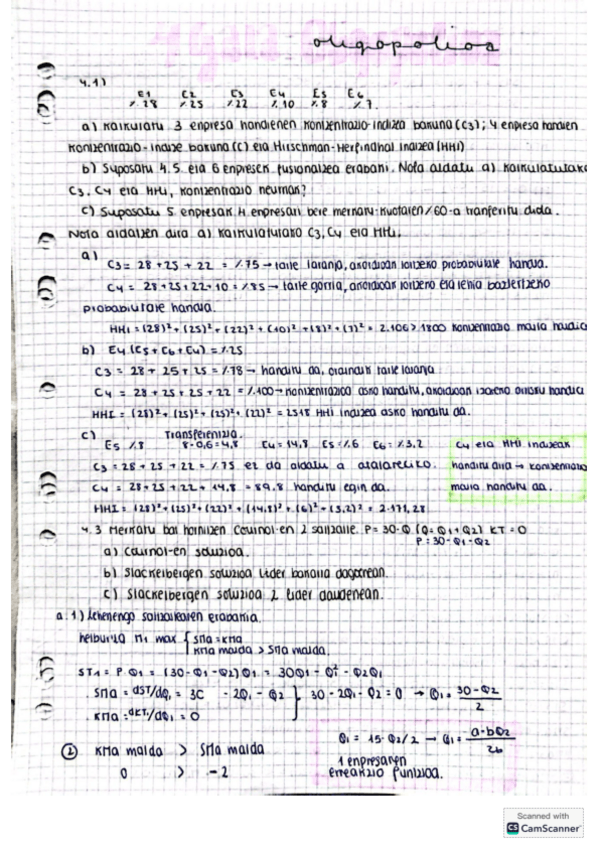 oligopolioa
4.1)
E1 E2 E3 E4 E5 E6
%28 %25 %22 %10 %8 %7
a) Kalkulatu 3 enpresa handienen kontzentrazio-indizea bakuna (C3); 4 enpresa handien
kontzentrazio-indize bakuna (C) eta Hirschman-Herfindhal indizea (HHI)
b) Suposatu 4.5. eta 6 enpresek fusionatzea erabaki. Nola aldatu a) kalkulatutako
C3, C4 eta HHI, kontzentrazio neurriak?
c) Suposatu 5. enpresak 4. enpresari bere merkatu-kuotaren %60-a tranferitu diola.
Nola aldatzen dira a) kalkulatutako C3, C4 eta HHI.
a)
C3 = 28 + 25 + 22 = %75 → talde laranja, akordioan iortzeko probabilitate handia.
C4 = 28 + 25 + 22 + 10 = %85 → talde gorria, akordioan iortzeko eta lehia baztertzeko
probabilitate handia.
HHI = (28)² + (25)² + (22)² + (10)² + (8)² + (7)² = 2.106 > 1800 kontzentrazio maila handia
b) E4 (E5 + E6 + E4) = %25
C3 = 28 + 25 + 25 = %78 → handitu da, oraindik talde laranja
C4 = 28 + 25 + 25 + 22 = %100 → kontzentrazioa asko handitu, akordioan izateko arrisku handia
HHI = (28)² + (25)² + (25)² + (22)² = 2518 HHI indizea asko handitu da.
c) Transferentzia.
E5 %8 8·0,6 = 4,8 E4 = 14,8 E5 = %6 E6 = %3,2
C3 = 28 + 25 + 22 = %75 ez da aldatu a atalarekiko.
C4 = 28 + 25 + 22 + 14,8 = 89,8 handitu egin da.
HHI = (28)² + (25)² + (22)² + (14,8)² + (6)² + (3,2)² = 2.171,28
C4 eta HHI indizeak
handitu dira → kontzentrazio
maila handitu da.
4.3 Merkatu bat hornitzen Cournot-en 2 saltzaile. P = 30 - Q (Q = Q1 + Q2) KT = 0
P = 30 - Q1 - Q2
a) Cournot-en soluzioa.
b) Stackelbergen soluzioa lider bakarra dagoenean.
c) Stackelbergen soluzioa 2 lider daudenean.
a.1) Lehenengo saltzailearen erabakia.
helburua π1 max { SMa = KMa
KMa malda > SMa malda.
ST1 = P·Q1 = (30 - Q1 - Q2) Q1 = 30Q1 - Q² - Q2Q1
· SMa = dST/dQ1 = 30 - 2Q1 - Q2 } 30 - 2Q1 - Q2 = 0 → Q1 = 30 - Q2 / 2
· KMa = dKT1/dQ1 = 0
② KMa malda > SMa malda
0 > -2
Q1 = 15 - Q2/2 → Q1 = a - bQ2 / 2b
1 enpresaren
erreakzio funtzioa.
Scanned with
CS CamScanner